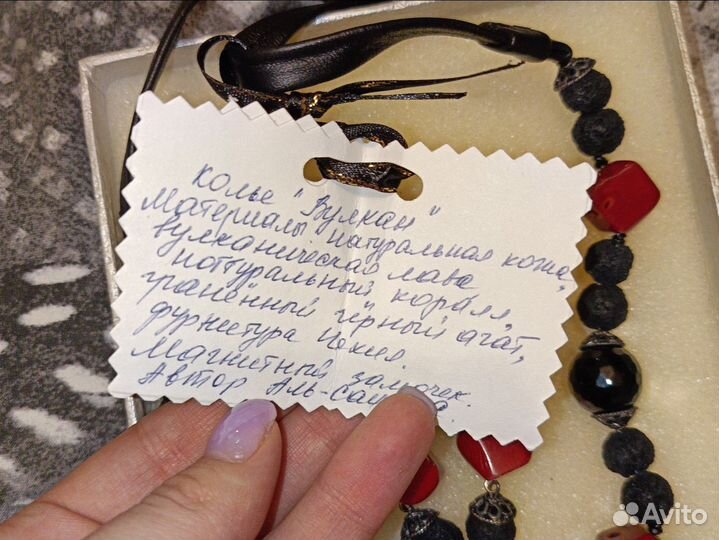 колье "Вулкан"
Материалы натуральная кожа,
вулканическая лава
натуральный коралл,
гранённый чёрный агат,
фурнитура Чехия.
Магнитный замочек.
Автор
Avito